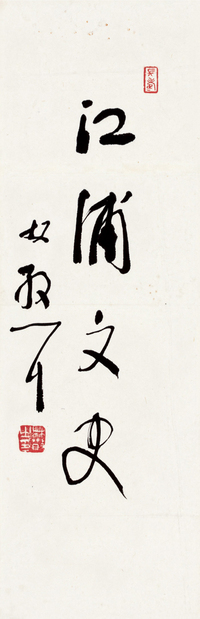 江浦文史
林散耳